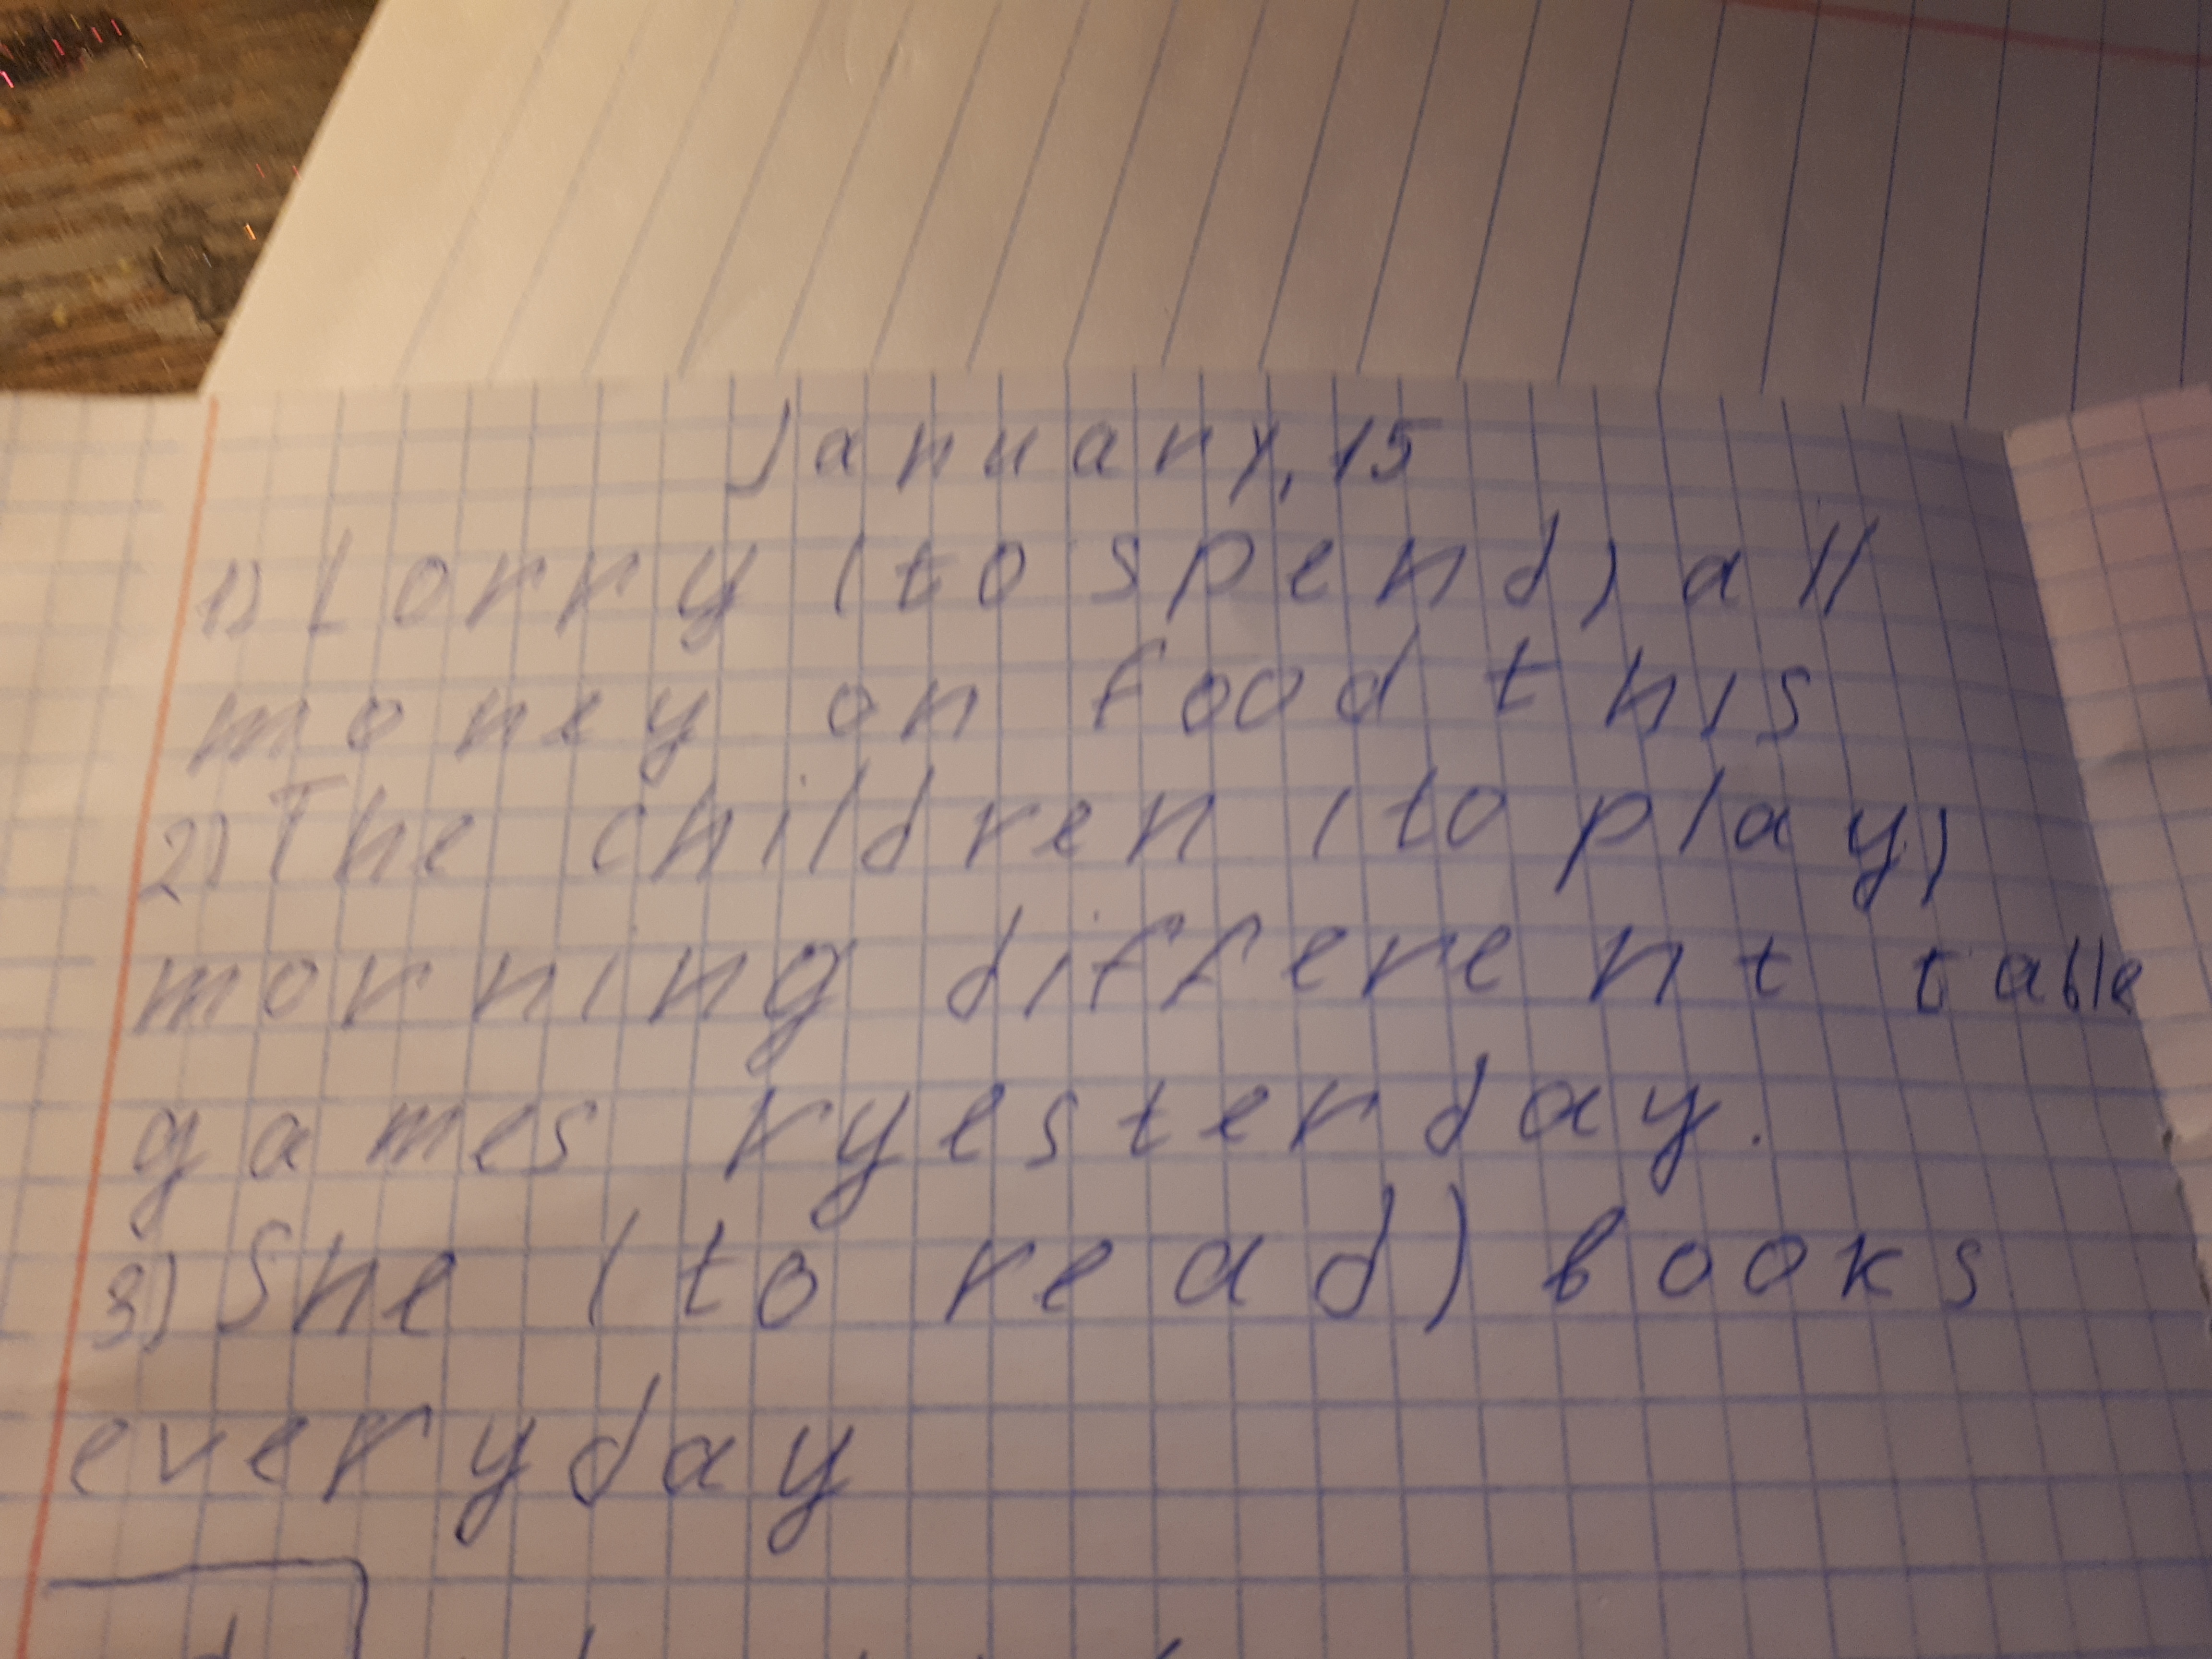 January, 15
1) Lorry (to spend) all
money on food this
2) The children (to play)
morning different table
games ryesterday.
3) She (to read) books
everyday